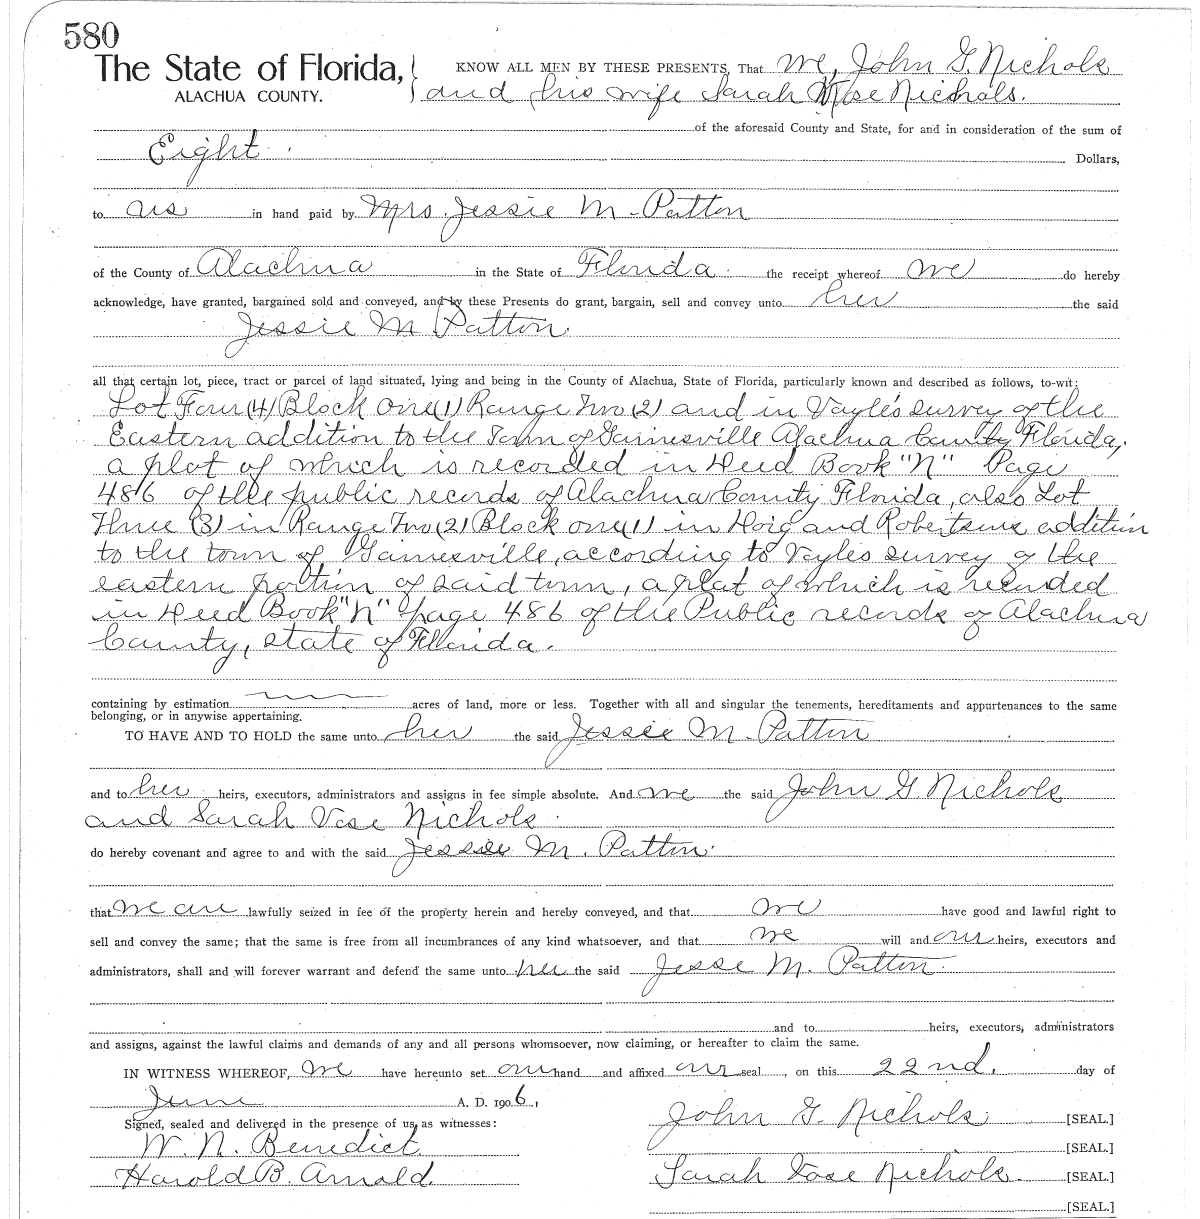 580
The State of Florida,
ALACHUA COUNTY.
KNOW ALL MEN BY THESE PRESENTS, That we, John G. Nichols
and his wife Sarah Vose Nichols.
of the aforesaid County and State, for and in consideration of the sum of
Eight
Dollars,
to us in hand paid by Mrs. Jessie M. Patton
of the County of Alachua in the State of Florida the receipt whereof we do hereby
acknowledge, have granted, bargained sold and conveyed, and by these Presents do grant, bargain, sell and convey unto her the said
Jessie M Patton
all that certain lot, piece, tract or parcel of land situated, lying and being in the County of Alachua, State of Florida, particularly known and described as follows, to-wit:
Lot Four (4) Block one (1) Range Two (2) and in Vayle's survey of the
Eastern addition to the Town of Gainesville Alachua County Florida,
a plot of which is recorded in Deed Book "N" Page
486 of the public records of Alachua County Florida, also Lot
Three (3) in Range Two (2) Block one (1) in Hoig and Robertsons addition
to the town of Gainesville, according to Vayles survey of the
eastern portion of said town, a plat of which is recorded
in Deed Book "N" page 486 of the Public records of Alachua
County, state of Florida.
containing by estimation acres of land, more or less. Together with all and singular the tenements, hereditaments and appurtenances to the same
belonging, or in anywise appertaining.
TO HAVE AND TO HOLD the same unto her the said Jessie M. Patton
and to her heirs, executors, administrators and assigns in fee simple absolute. And we the said John G. Nichols
and Sarah Vose Nichols
do hereby covenant and agree to and with the said Jessie M. Patton
that we are lawfully seized in fee of the property herein and hereby conveyed, and that we have good and lawful right to
sell and convey the same; that the same is free from all incumbrances of any kind whatsoever, and that we will and our heirs, executors and
administrators, shall and will forever warrant and defend the same unto her the said Jesse M. Patton.
and to heirs, executors, administrators
and assigns, against the lawful claims and demands of any and all persons whomsoever, now claiming, or hereafter to claim the same.
IN WITNESS WHEREOF, we have hereunto set our hand and affixed our seal, on this 22nd, day of
June A. D. 1906,
Signed, sealed and delivered in the presence of us as witnesses:
John G. Nichols [SEAL.]
W. N. Benedict [SEAL.]
Harold B. Arnold. Sarah Vose Nichols [SEAL.]
[SEAL.]